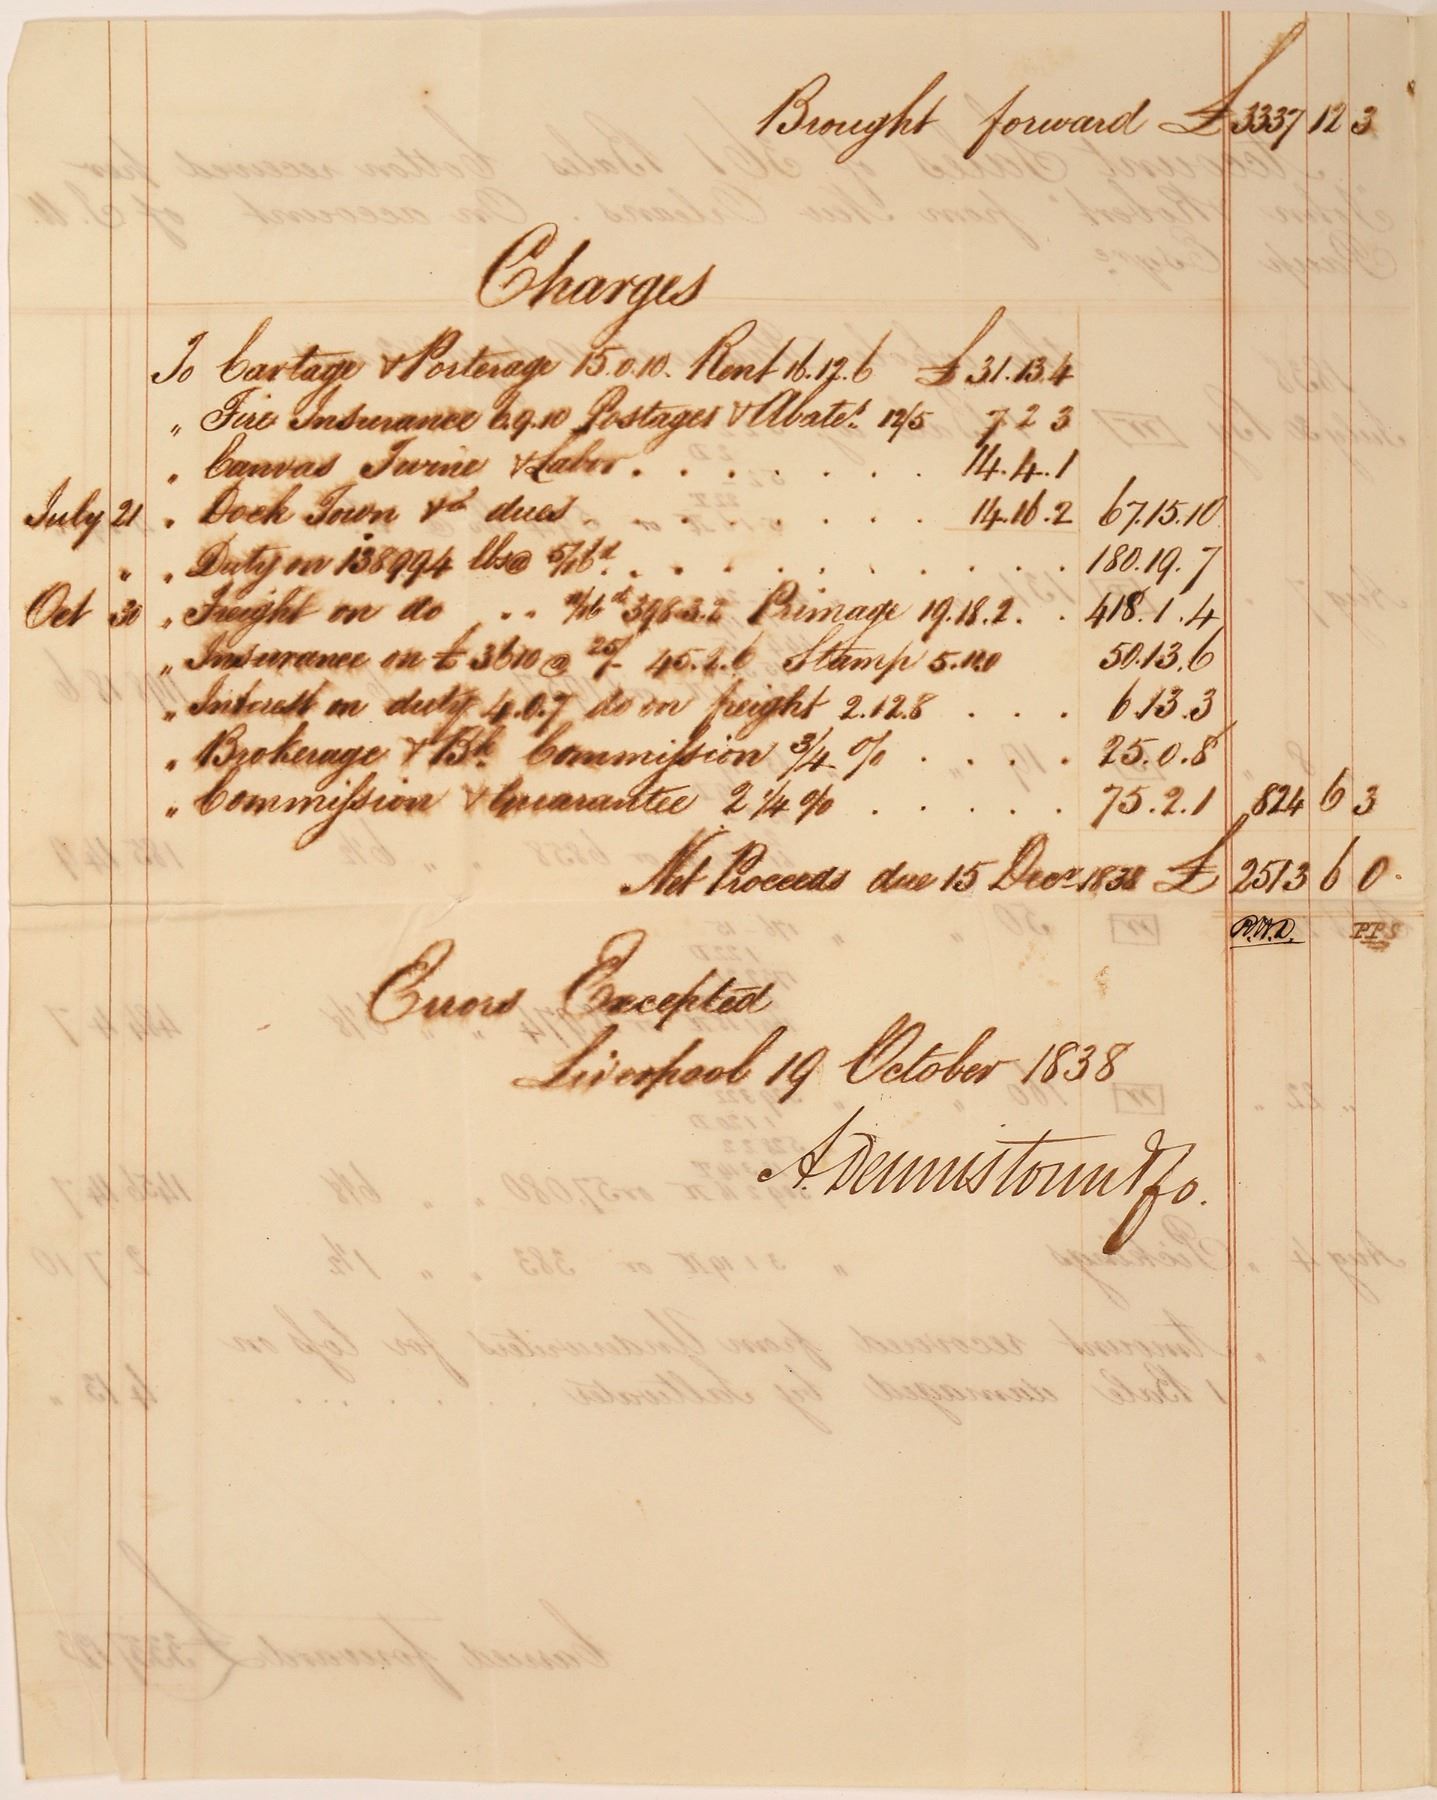 Brought forward £ 3337 12 3
Charges
To Cartage & Porterage 15.0.10. Rent 16.12.6 £ 31.13.4
" Fire Insurance 6.9.10 Postages & Abatet. 12/5 7 2 3
" Canvas Twine & Labor . . . . . . . 14.4.1
July 21 " Dock Town &c dues . . . . . . 14.16.2 67.15.10
" " Duty on 138994 lbs @ 5/16d. . . . . . . . . . . 180.19.7
Oct 30 " Freight on do . . 11/16d 398.3.2 Primage 19.18.2. . 418.1.4
" Insurance on £ 3610 @ 25/- 45.2.6 Stamp 5.11.0 50.13.6
" Interest on duty 4.0.7 do on freight 2.12.8 . . . 6.13.3
" Brokerage & Bk. Commission 3/4 % . . . . 25.0.8
" Commission & Guarantee 2 1/4 % . . . . . 75.2.1 824 6 3
Net Proceeds due 15 Decr 1838 £ 2513 6 0.
P.P.S
Errors Excepted
Liverpool 19 October 1838
A. Dennistoun & Co.